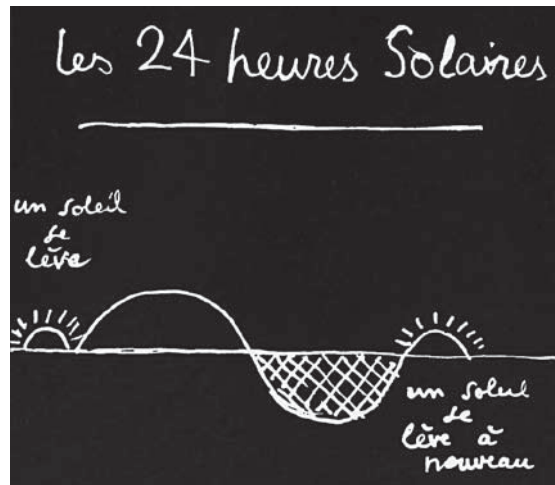 les 24 heures Solaires
un soleil
se
lève
un soleil
se
lève à
nouveau